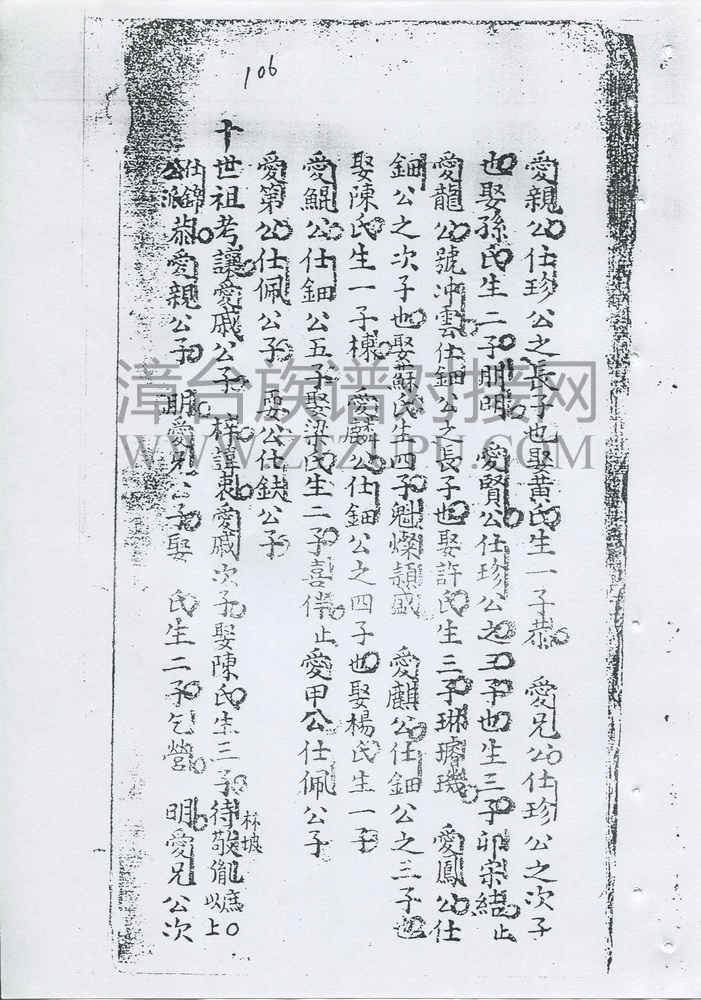 106
愛親公仕珍公之長子也娶黃氏生一子恭 愛兄公仕珍公之次子
也娶孫氏生二子朋明 愛賢公仕珍公之三子也生三子卯宗結止
愛龍公號冲雲仕鈿公之長子也娶許氏生三子琳璿璣 愛鳳公仕
鈿公之次子也娶蘇氏生四子魁燦頴盛 愛麒公仕鈿公之三子也
娶陳氏生一子棟 愛麟公仕鈿公之四子也娶楊氏生一子
愛鯤公仕鈿公五子娶梁氏生二子喜伴止愛甲公仕佩公子
愛第公仕佩公子 耍公仕鈇公子
十世祖考讓愛戚公子 梓諱衷愛戚次子娶陳氏生三子待敬胤 以上
林坡
仕錦公派 恭愛親公子 明愛兄公子娶 氏生二子乞營 明愛兄公次
漳台族谱对接网
WWW.ZTZUPU.COM